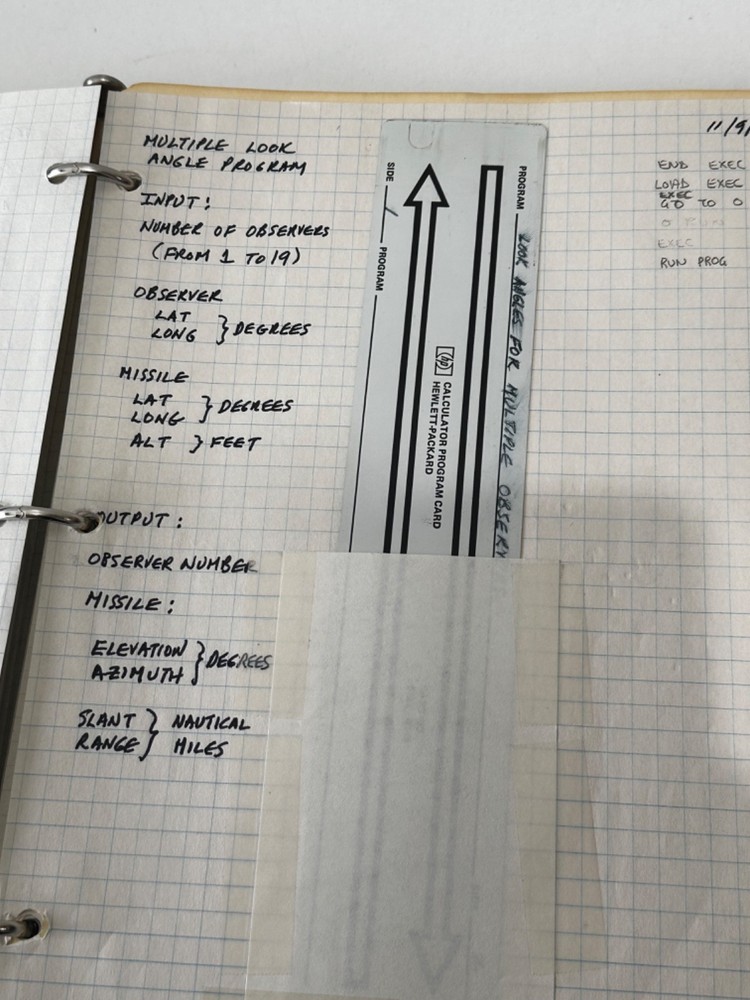 MULTIPLE LOOK
ANGLE PROGRAM
INPUT:
NUMBER OF OBSERVERS
(FROM 1 TO 19)
OBSERVER
LAT
LONG } DEGREES
MISSILE
LAT
LONG } DEGREES
ALT } FEET
OUTPUT:
OBSERVER NUMBER
MISSILE:
ELEVATION
AZIMUTH } DEGREES
SLANT } NAUTICAL
RANGE MILES
SIDE 1 PROGRAM
hp CALCULATOR PROGRAM CARD
HEWLETT-PACKARD
PROGRAM LOOK ANGLES FOR MULTIPLE OBSERV
11/9/
END EXEC
LOAD EXEC
EXEC
GO TO 0
EXEC
RUN PROG